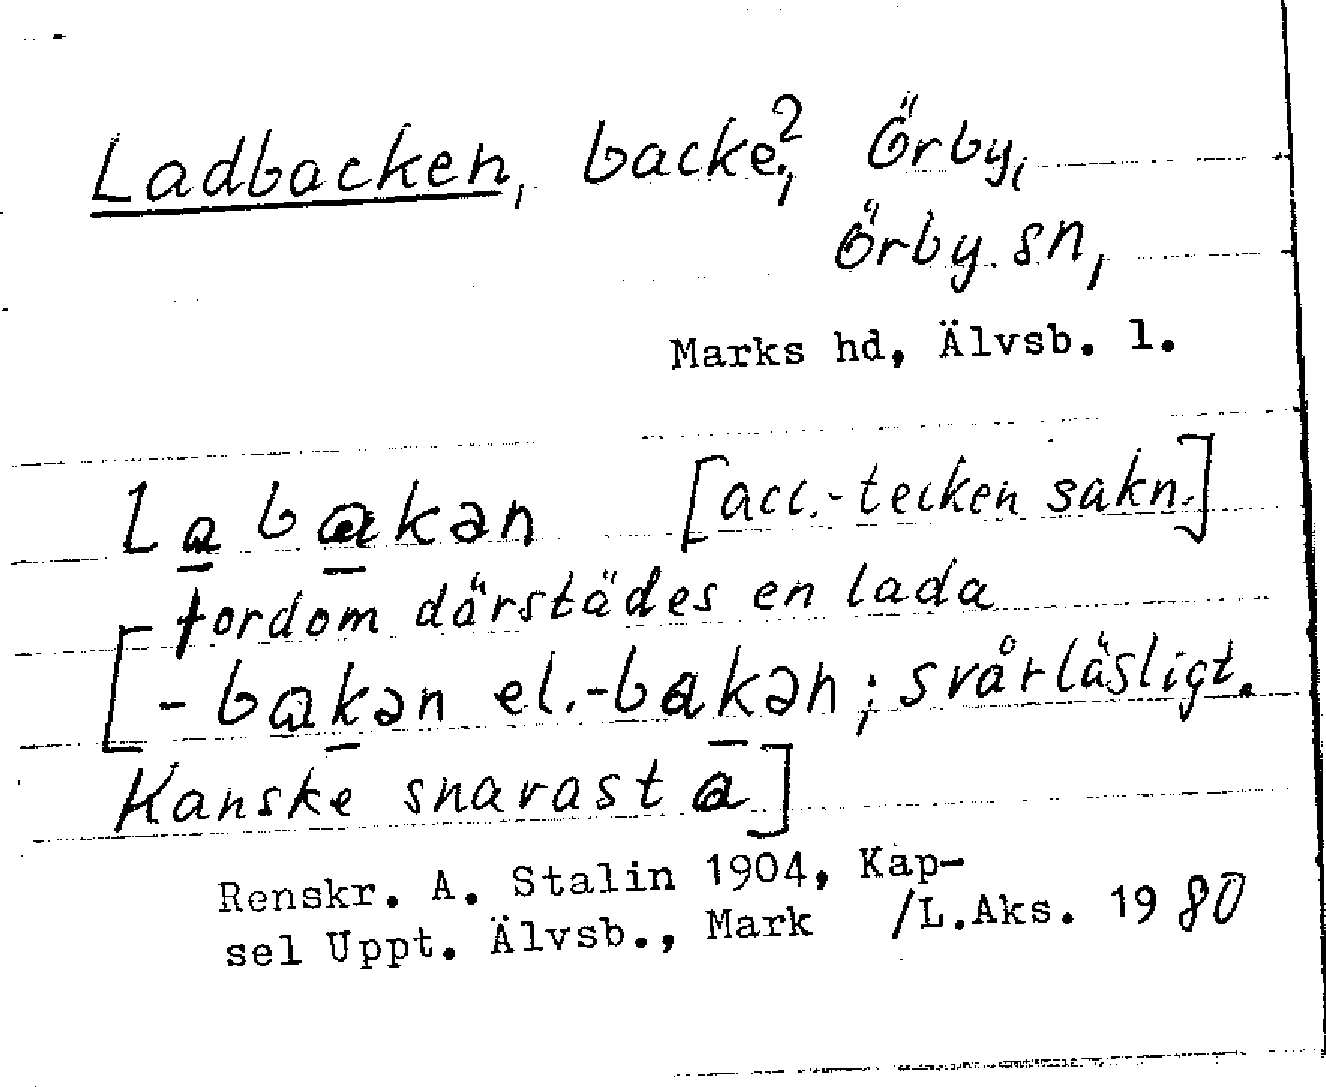 Ladbacken, backe?, Örby,
Örby sn,
Marks hd, Älvsb. l.
Labakən [acc.-tecken sakn.]
fordom därstädes en lada
[-bakən el. -bakən; svårläsligt.
Kanske snarast a]
Renskr. A. Stalin 1904, Kap-
sel Uppt. Älvsb., Mark /L.Aks. 1980